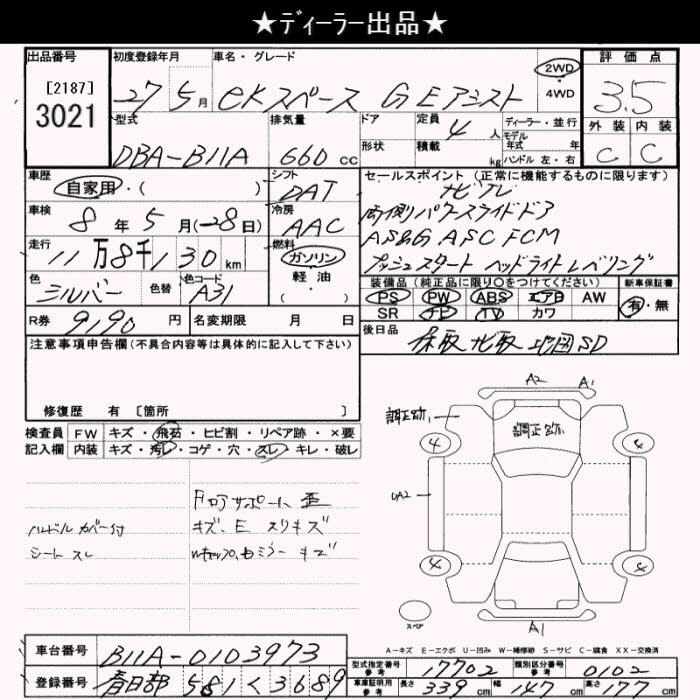 ★ディーラー出品★
出品番号 初度登録年月 車名・グレード 2WD 4WD 評価点
[2187] 3021 27 5月 eKスペース G Eアシスト 3.5
型式 排気量 ドア 定員 4人 ディーラー・並行 外装 内装
DBA-B11A 660cc 形状 積載 kg モデル年式 年 ハンドル 左・右 C C
車歴 シフト セールスポイント (正常に機能するものに限ります)
自家用・( ) DAT ナビTV
車検 冷房 両側パワースライドドア
8年5月(-28日) AAC AS&G ASC FCM
走行 燃料 プッシュスタート ヘッドライトレベリング
11万8千130km ガソリン 軽・油 ・( )
色 色替 色コード 装備品 (純正品に限り○をつけてください) 新車保証書
シルバー A31 PS PW ABS エアB AW 有・無
R券 9190円 名変期限 月 日 SR ナビ TV カワ
注意事項申告欄(不具合内容等は具体的に記入して下さい) 後日品 保取 ナビ取 地図SD
修復歴 有 〔箇所 〕
検査員 FW キズ・飛石・ヒビ割・リペア跡・×要
記入欄 内装 キズ・汚レ・コゲ・穴・スレ・キレ・破レ
A2 A1
調正跡 調正跡
4 4
UA2
4 4
スペア
A1
ハンドルカバー付
シート スレ
キズ、E スリキズ
A-キズ E-エクボ U-凹み W-補修跡 S-サビ C-腐食 XX-交換済
車台番号 B11A-0103973
型式指定番号 参考 17702 類別区分番号 参考 0102
登録番号 春日部 581く3689
車庫証明用 参考 長さ 339cm 幅 147cm 高さ 177cm